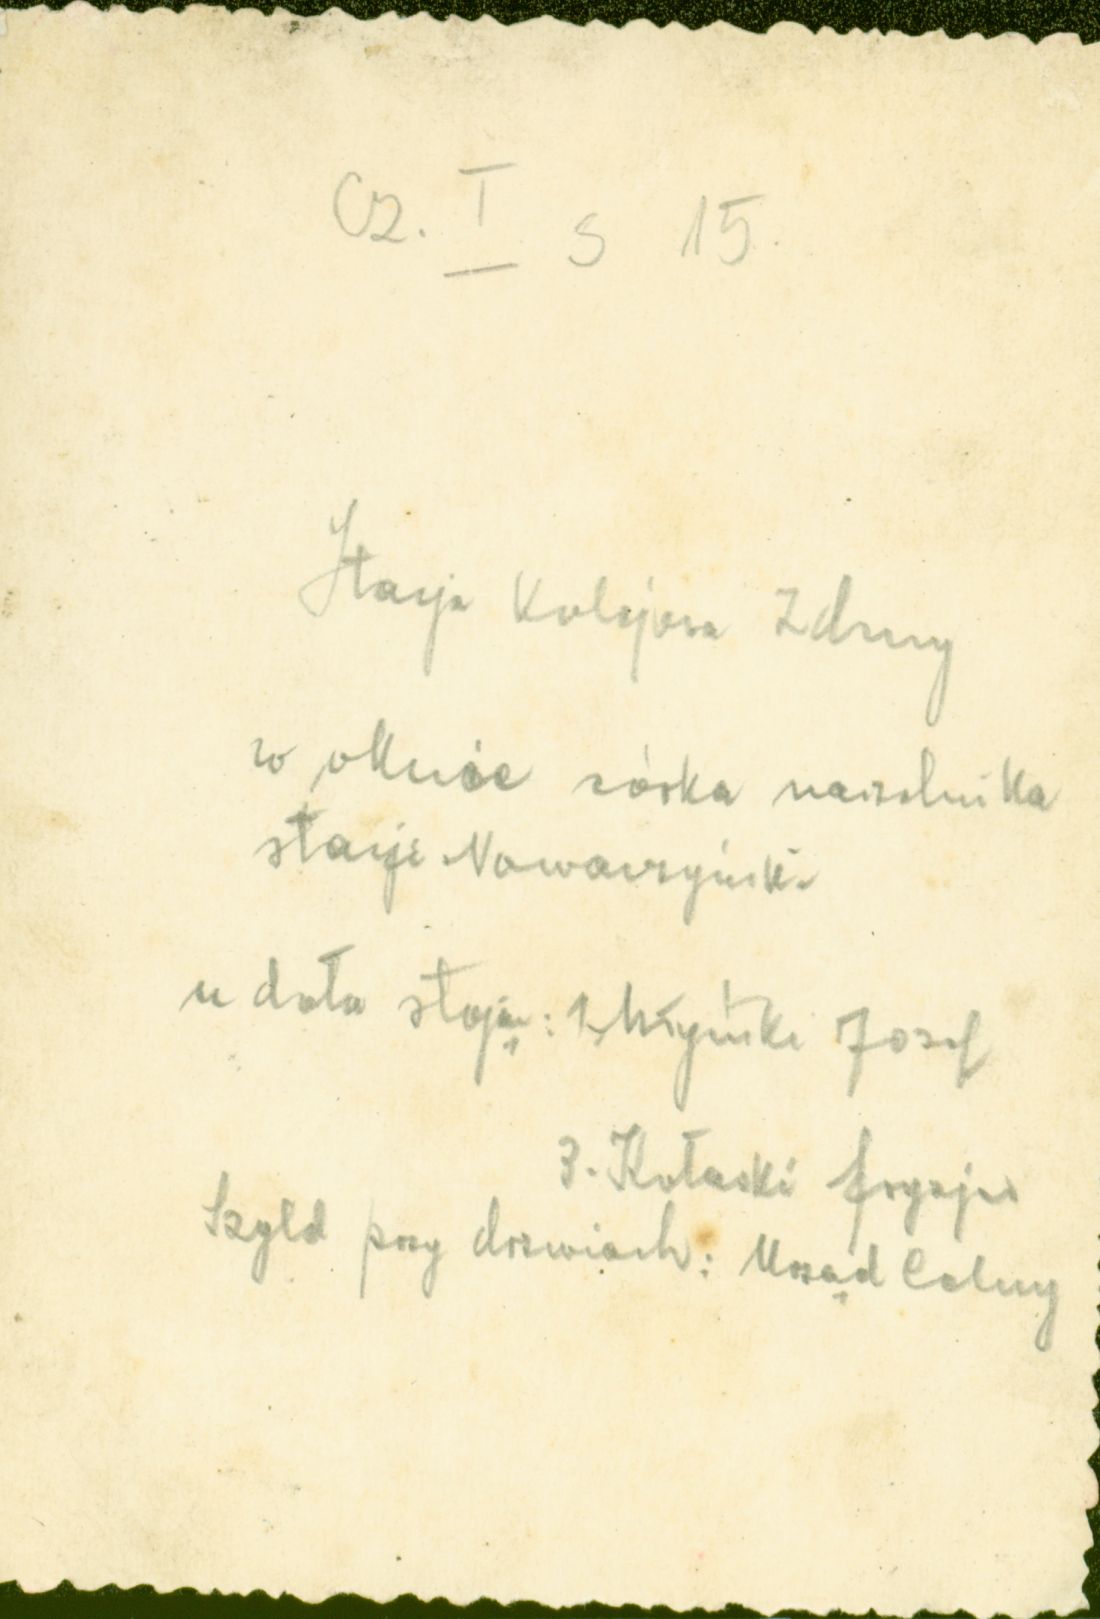 Cz. I s 15.
Stacja Kolejowa Zduny
w oknie córka naczelnika
stacji Nowaczyński
u dołu stoją: 1. Młyński Józef
3. Kołaski fryzjer
Szyld przy drzwiach: Urząd Celny